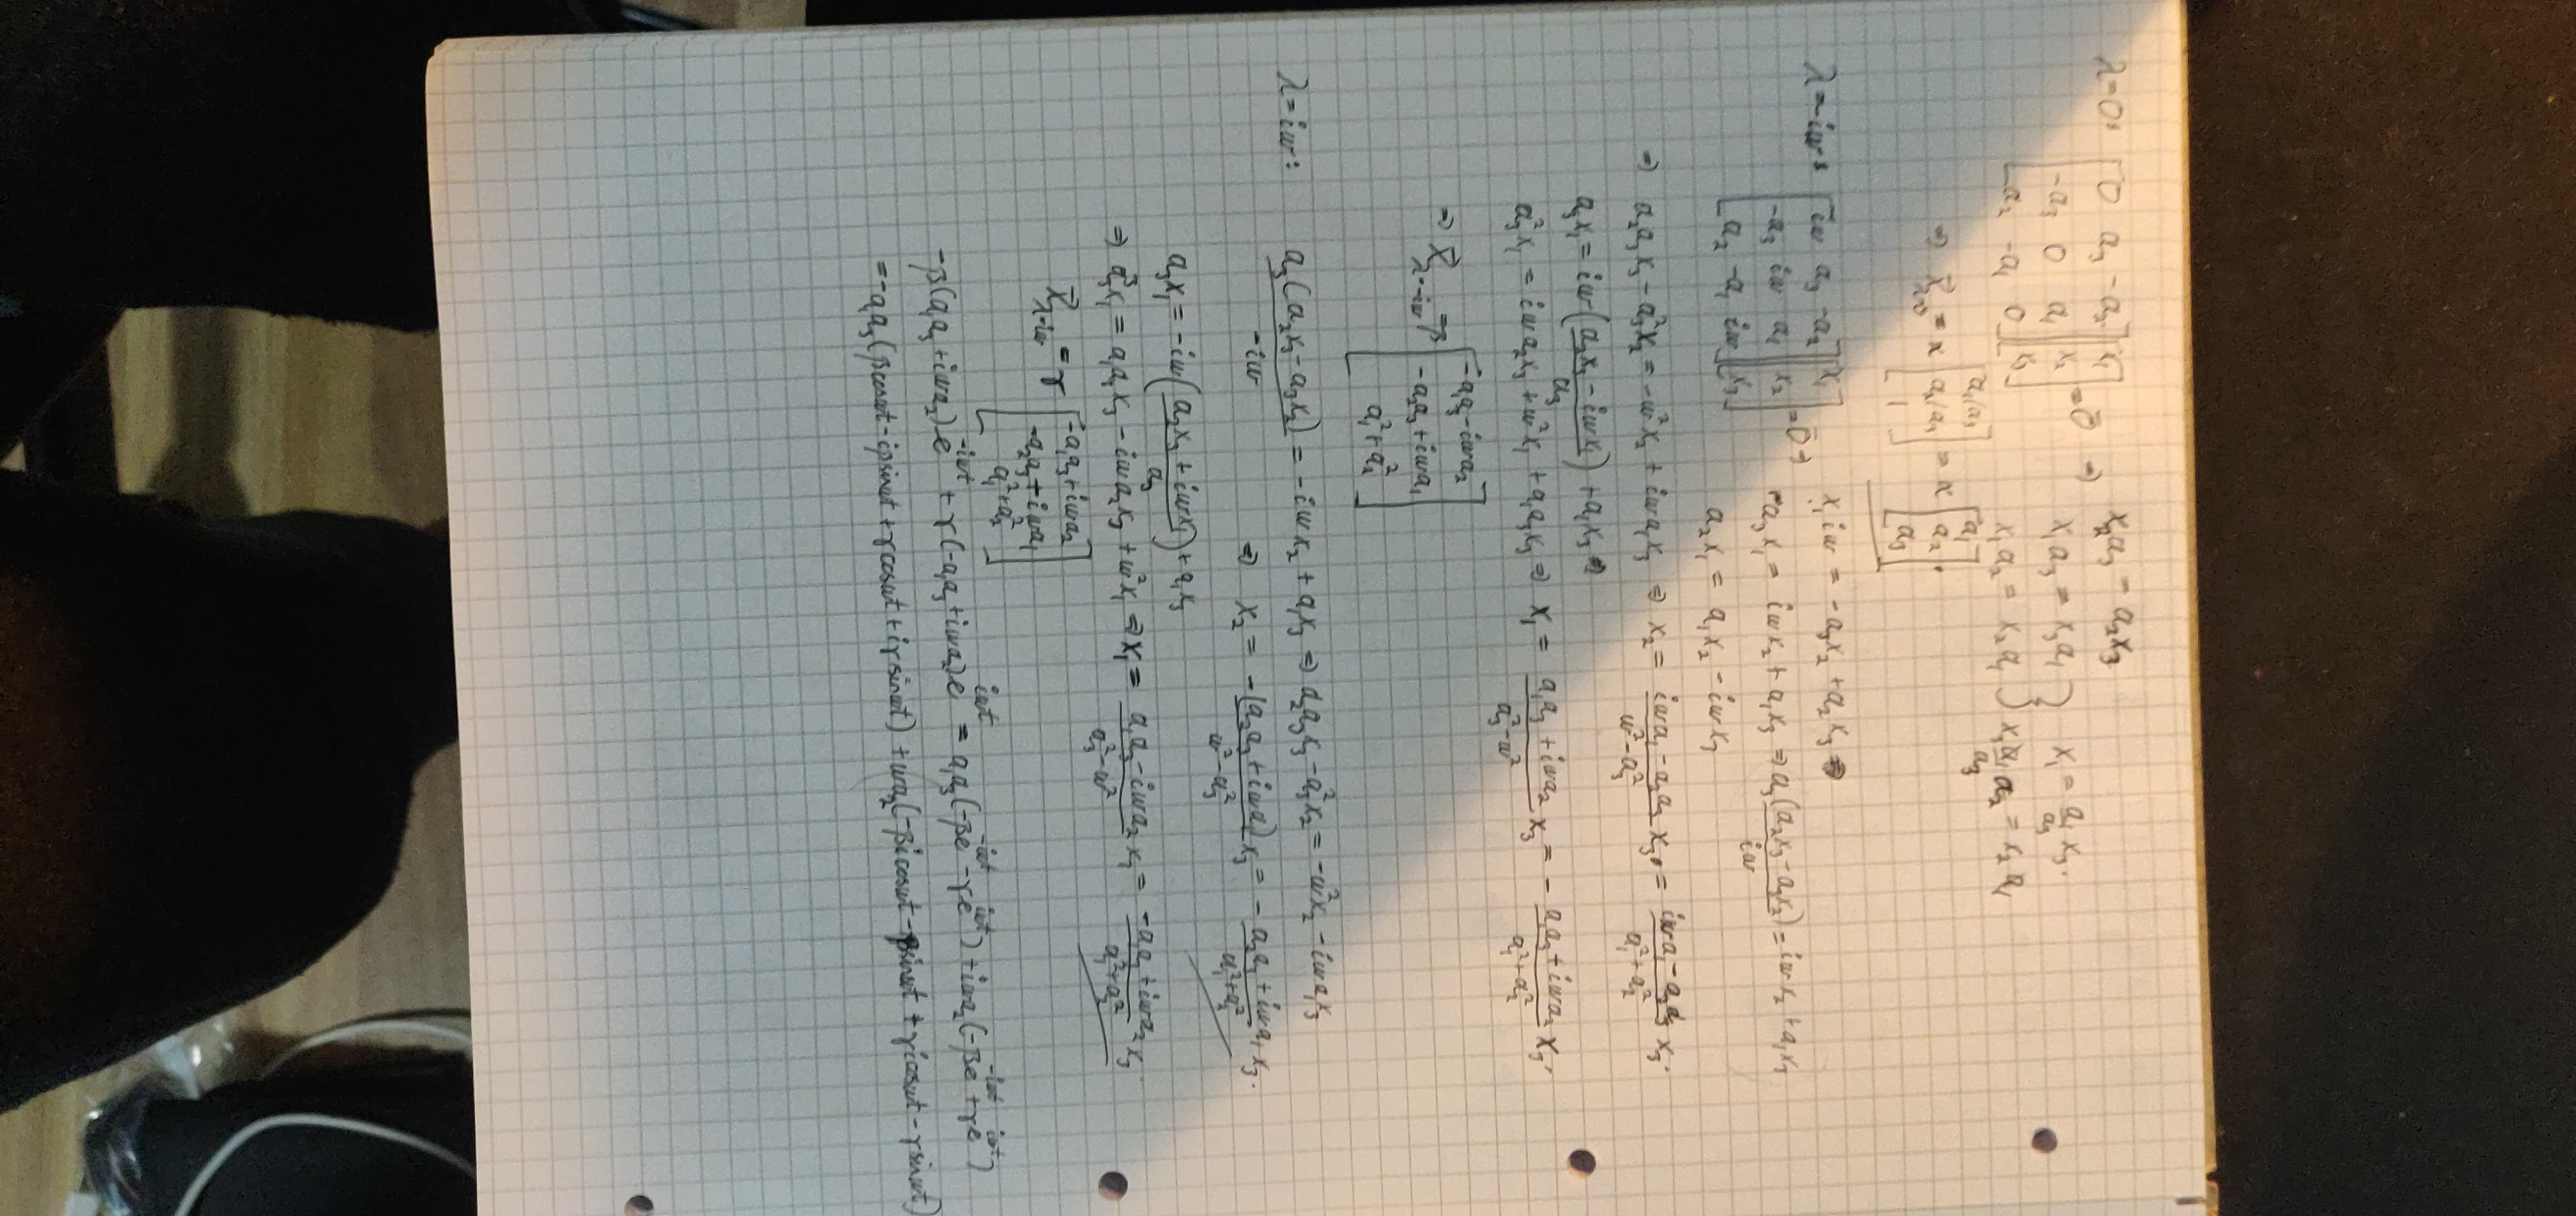 λ=0: [0 a₃ -a₂; -a₃ 0 a₁; a₂ -a₁ 0][x₁; x₂; x₃] = 0̄ ⇒ x₂a₃ = a₂x₃
x₁a₃ = x₃a₁ } x₁ = a₁/a₃ x₃.
x₁a₂ = x₂a₁ } x₃ a₁/a₃ a₂ = x₂a₁
⇒ x⃗_λ=0 = α[a₁/a₃; a₂/a₃; 1] = α[a₁; a₂; a₃].
λ=-iω: [iω a₃ -a₂; -a₃ iω a₁; a₂ -a₁ iω][x₁; x₂; x₃] = 0̄ ⇒ x₁iω = -a₃x₂ + a₂x₃ ⇒
a₃x₁ = iωx₂ + a₁x₃ ⇒ a₃(a₂x₃ - a₃x₂)/iω = iωx₂ + a₁x₃
a₂x₁ = a₁x₂ - iωx₃
⇒ a₂a₃x₃ - a₃²x₂ = -ω²x₂ + iωa₁x₃ ⇒ x₂ = (iωa₁ - a₂a₃)/(ω² - a₃²) x₃ = (iωa₁ - a₂a₃)/(a₁² + a₂²) x₃.
a₃x₁ = iω((a₂x₃ - iωx₁)/a₃) + a₁x₃ ⇒
a₃²x₁ = iωa₂x₃ + ω²x₁ + a₁a₃x₃ ⇒ x₁ = (a₁a₃ + iωa₂)/(a₃² - ω²) x₃ = - (a₁a₃ + iωa₂)/(a₁² + a₂²) x₃.
⇒ x⃗_λ=-iω = β[-a₁a₃ - iωa₂; -a₂a₃ + iωa₁; a₁² + a₂²]
λ=iω: a₃(a₂x₃ - a₃x₂)/-iω = -iωx₂ + a₁x₃ ⇒ a₂a₃x₃ - a₃²x₂ = -ω²x₂ - iωa₁x₃
⇒ x₂ = -(a₂a₃ + iωa₁)/(ω² - a₃²) x₃ = - (a₂a₃ + iωa₁)/(a₁² + a₂²) x₃.
a₃x₁ = -iω((a₂x₃ + iωx₁)/a₃) + a₁x₃
⇒ a₃²x₁ = a₁a₃x₃ - iωa₂x₃ + ω²x₁ ⇒ x₁ = (a₁a₃ - iωa₂)/(a₃² - ω²) x₃ = (-a₁a₃ + iωa₂)/(a₁² + a₂²) x₃
x⃗_λ=iω = γ[-a₁a₃ + iωa₂; -a₂a₃ - iωa₁; a₁² + a₂²]
-β(a₁a₃ + iωa₂)e^-iωt + γ(-a₁a₃ + iωa₂)e^iωt = a₁a₃(-βe^-iωt - γe^iωt) + iωa₂(-βe^-iωt + γe^iωt)
= -a₁a₃(βcosωt - iβsinωt + γcosωt + iγsinωt) + ωa₂(-βicosωt - βsinωt + γicosωt - γsinωt)